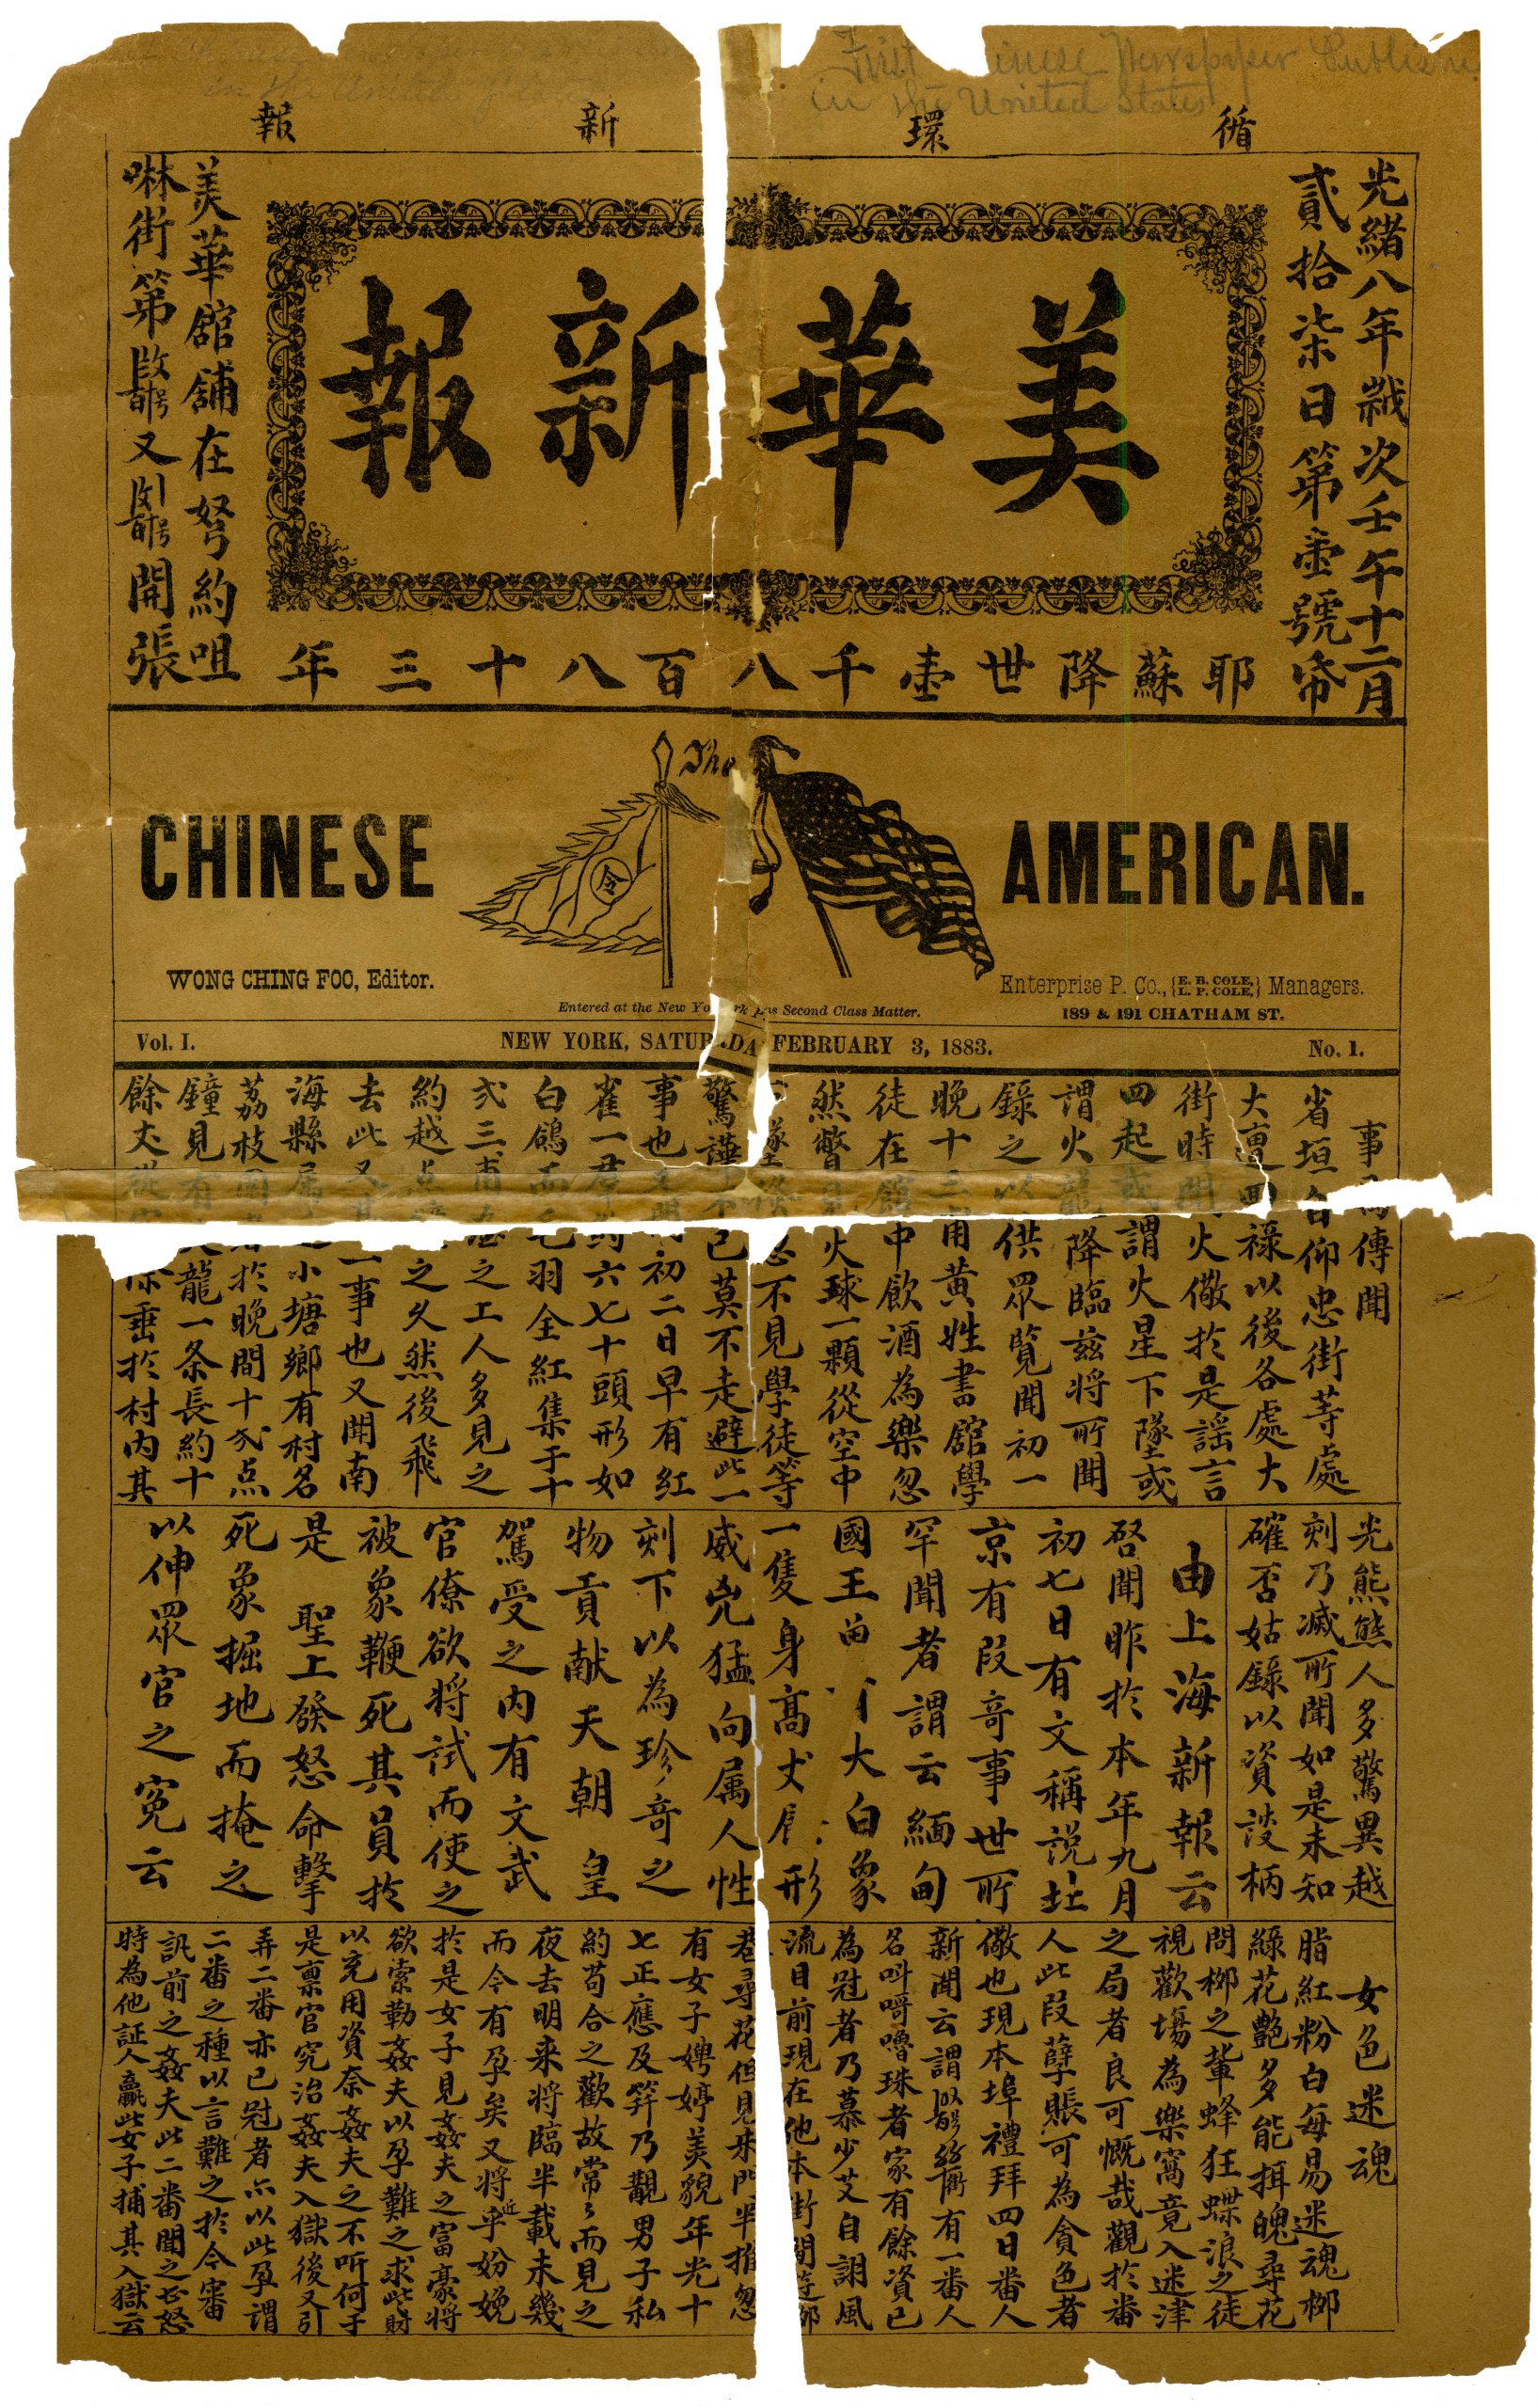 First Chinese Newspaper Publish
in the United States
in the United States
循環新報
光緒八年歲次壬午十二月
貳拾柒日第壹號帋
美華新報
美華舘舖在弩約咀
啉街第
又
開張
耶蘇降世壹千八百八十三年
The
CHINESE AMERICAN.
令
WONG CHING FOO, Editor.
Enterprise P. Co., {E. B. COLE, L. P. COLE,} Managers.
189 & 191 CHATHAM ST.
Entered at the New York as Second Class Matter.
Vol. I.
NEW YORK, SATURDAY FEBRUARY 3, 1883.
No. 1.
事 傳聞
省垣 仰忠街等處
大 祿以後各處大
街時聞 火儆於是謠言
四起或謂火星下墜或
謂火龍降臨兹將所聞
錄之以供眾覽聞初一
晚十三甫黃姓書舘學
徒在舘中飲酒為樂忽
然瞥見火球一顆從空中
墜 忽不見學徒等
驚譁不已莫不走避此一
事也又聞初二日早有紅
雀一羣約六七十頭形如
白鴿而毛羽全紅集于十
弍三甫 之工人多見之
約越 点 之久然後飛
去此又 一事也又聞南
海縣属 小塘鄉有村名
荔枝園者於晚間十弍点
鐘見有火龍一条長約十
餘丈從空 垂於村内其
光熊熊人多驚異越
刻乃滅所聞如是未知
確否姑錄以資談柄
由上海新報云
啓聞昨於本年九月
初七日有文稱説北
京有段竒事世所
罕聞者謂云緬甸
國王 大白象
一隻身髙丈 形
威兇猛向属人性
刻下以為珍竒之
物貢献天朝 皇
駕受之内有文武
官僚欲將試而使之
被象鞭死其員於
是 聖上發怒命擊
死象掘地而掩之
以伸眾官之寃云
女色迷魂
脂紅粉白每易迷魂栁
綠花艶多能揖魄尋花
問栁之輩蜂狂蝶浪之徒
視歡塲為樂窩竟入迷津
之局者良可慨哉觀於番
人此段孽賬可為貪色者
儆也現本埠禮拜四日番人
新聞云謂 有一番人
名呌嗬嚕珠者家有餘資已
為冠者乃慕少艾自詡風
流目前現在他本街閒遊栁
巷尋花但見朱門半推忽
有女子娉婷美貌年光十
七正應及筓乃覯男子私
約苟合之歡故常々而見之
夜去明来將臨半載未幾
而今有孕矣又將近乎妢娩
於是女子見姦夫之富豪將
欲索勒姦夫以孕難之求此財
以充用資奈姦夫之不听何于
是禀官究治姦夫入獄後又引
弄二番亦已冠者亦以此孕謂
二番之種以言難之於今審
訊前之姦夫此二番聞之甚怒
時為他証人贏此女子捕其入獄云